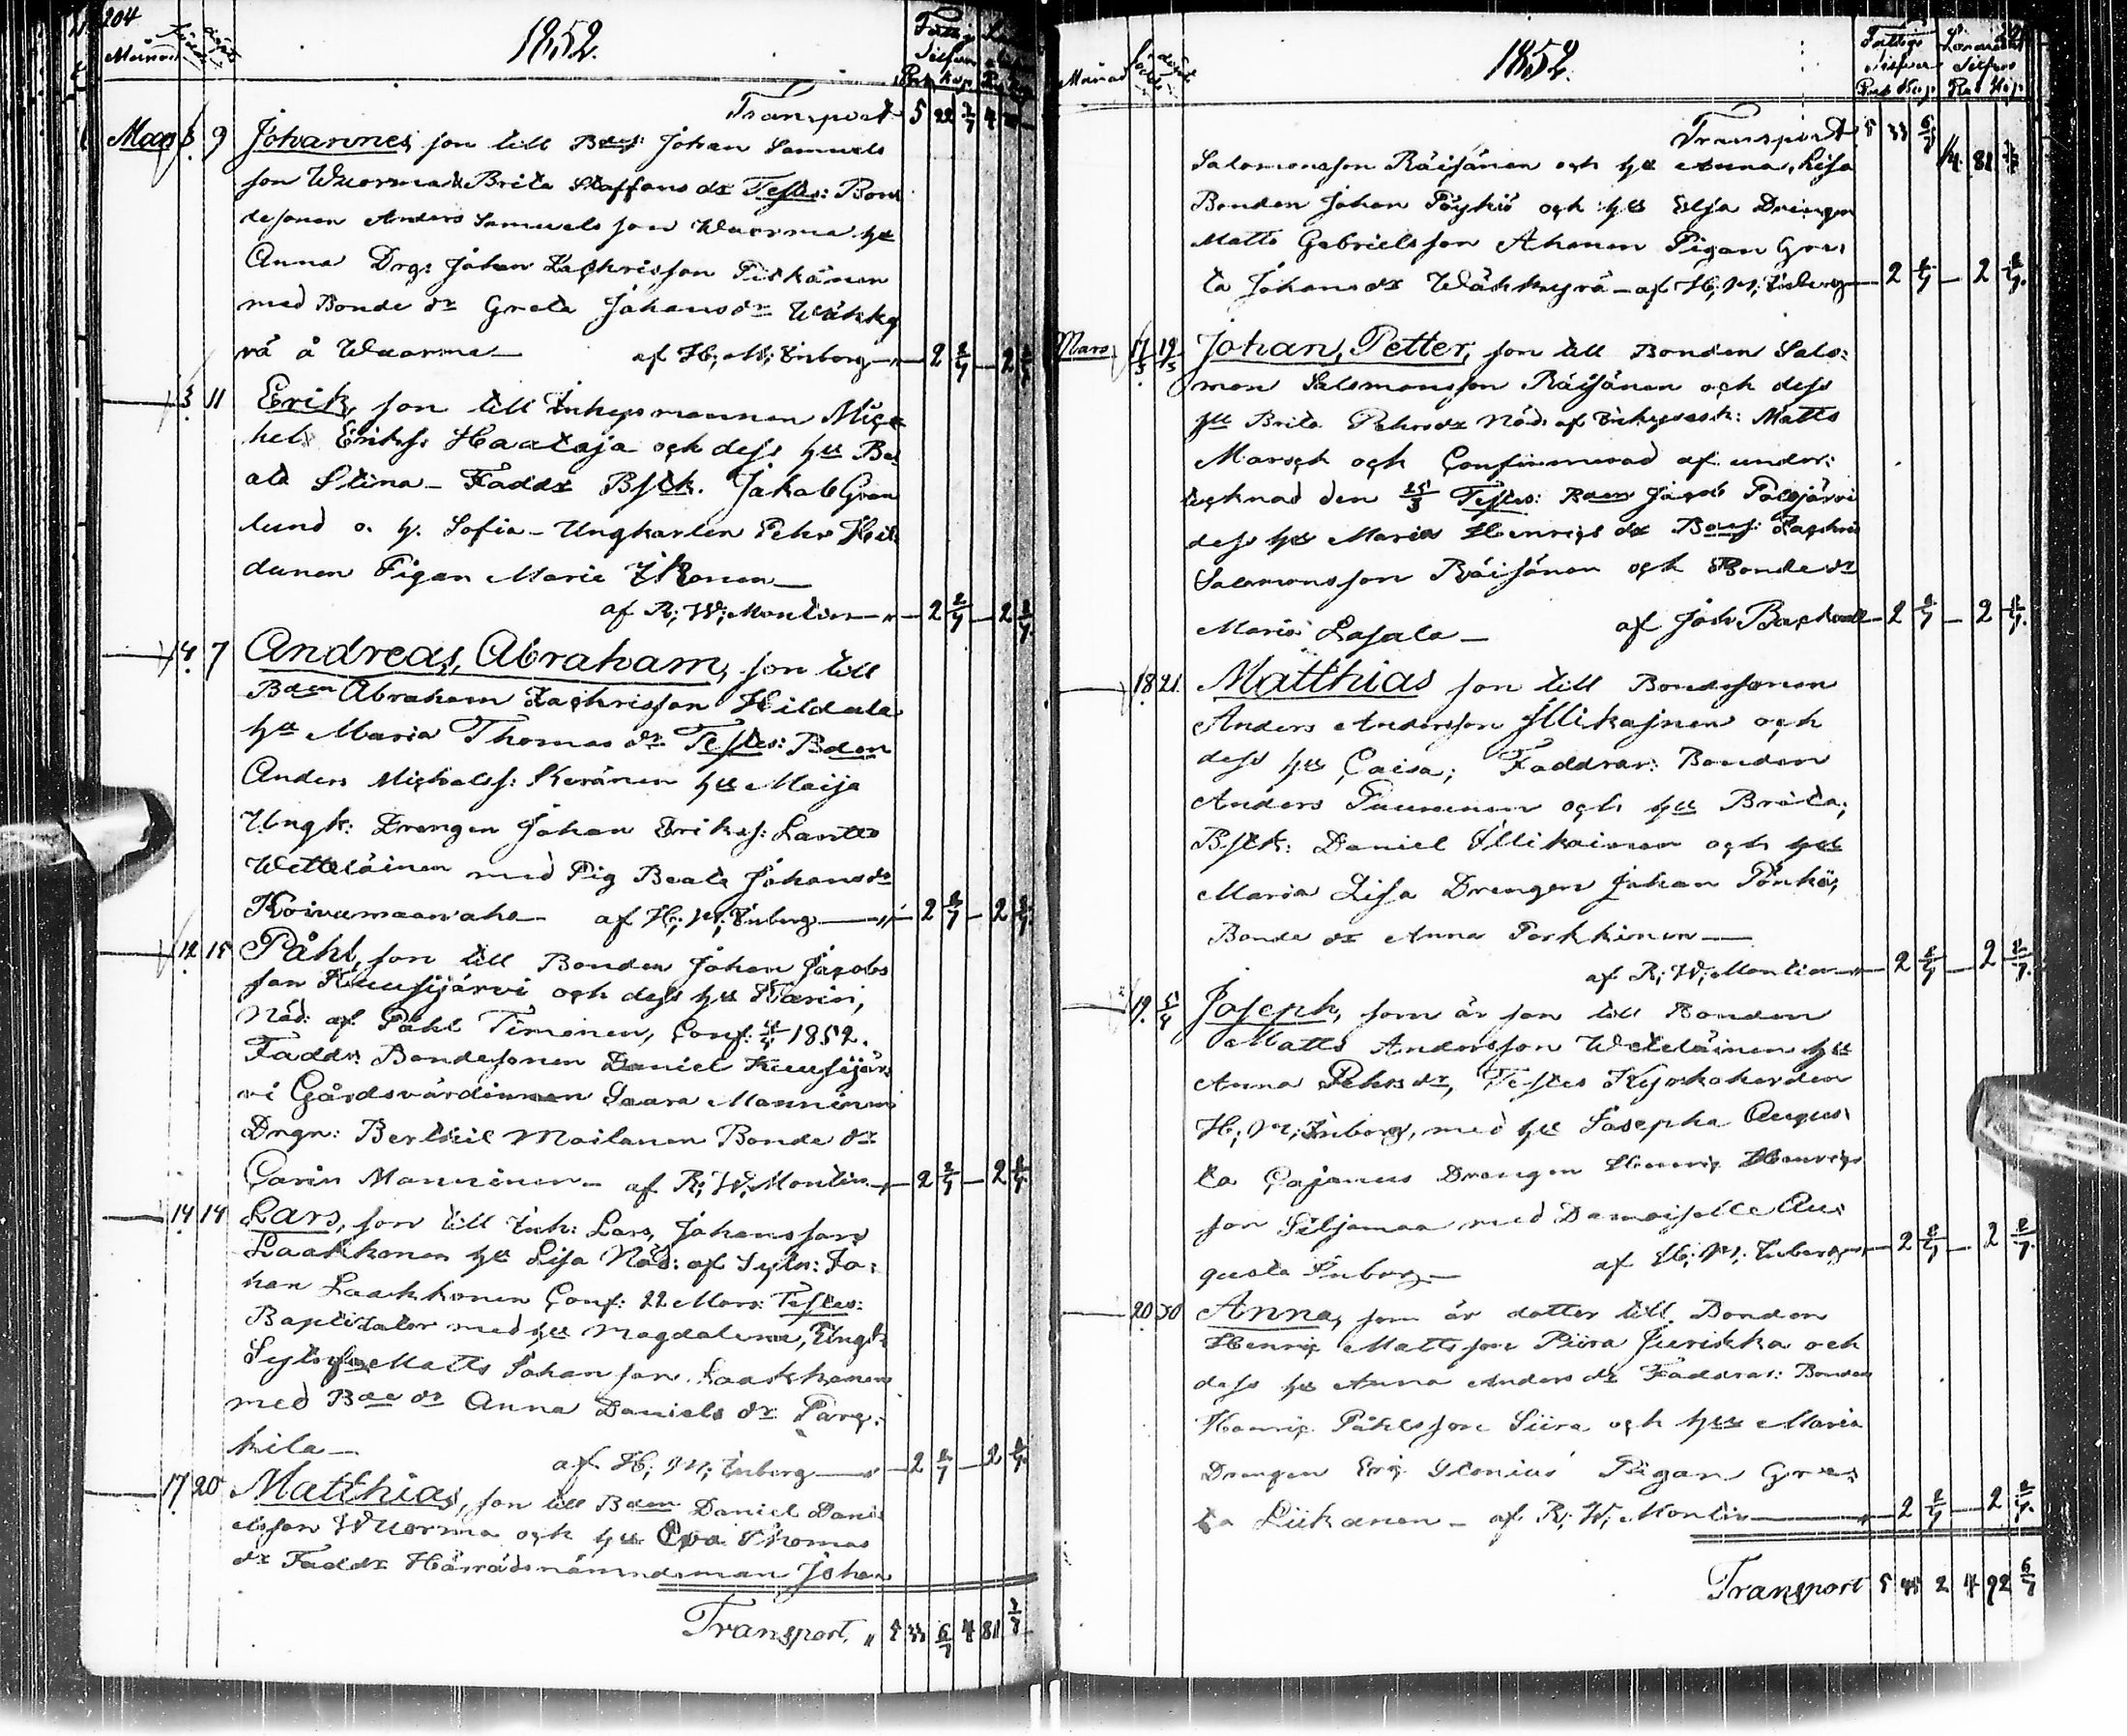 204
Månad
1852.
Transport 5 22 2/7 4
Mars 3. 9 Johannes, son till Bdes: Johan Samuels
son Wuorma & Brita Staffans dr Testes: Bon
desonen Anders Samuels son Wuorma hu
Anna Drg: Johan Zachrisson Piskänen
med Bonde dr Greta Johans dr Wäkky
rä å Wuorma — af H; M; Enberg — 2 2/7 — 2 2/7
3 11 Erik, son till Inhysmannen Mica
hel Eriks: Haataja och dess hu Be
ata Stina — Faddr Bstk. Jakob Gran
lund o. h. Sofia — Ungkarlen Pehr Hei
danen Pigan Maria
af R; W; Montin — 2 2/7 — 2 2/7
4 7 Andreas, Abraham, son till
Bden Abraham Zachrisson Hildala
hu Maria Thomas dr Testes: Bden
Anders Michelss: Keränen hu Maija
Ungk: Drengen Johan Eriks: Lantto
Wetteläinen med Pig Beata Johans dr
Koivumaanaho — af H; M; Enberg — 2 2/7 — 2 2/7
12 15 Påhl, son till Bonden Johan Jacobs
son Kuusijärvi och dess hu Karin,
Nöd: af Påhl Timonen, Conf: 1852.
Faddr: Bondesonen Daniel Kuusijär
vi Gårdsvärdinnan Saara Manninen
Drgn: Berthil Moilanen Bonde dr
Carin Manninen — af R; W; Montin — 2 2/7 — 2 2/7
14 14 Lars, son till Inh: Lars, Johansson
Laakkonen hu Lisa Nöd: af Sytn: Jo:
han Laakkonen Conf: 22 Mars: Testes:
Baptisator med hu Magdalena, Ungk
Sytn Matts Johanson Laakkonen
med Bde dr Anna Daniels dr Parq:
kila — af H; M; Enberg — 2 2/7 — 2 2/7
17 20 Matthias, son till Bden Daniel Dani
elsson Wuorma och hu Eva Thomas
dr Faddr Häradsnämndeman Johan
Transport, " 5 33 6/7 4 81 3/7
Månad
1852.
Fattigs Silfver
Transport 5 33 6/7 4 81 3/7
Salomonsson Räisänen och hu Anna, Lisa
Bonden Johan Pöykiö och hu Elsa Drengen
Matts Gabrielsson Ahonen Pigan Gre:
ta Johans dr Wäkkyrä — af H; M; Enberg — 2 2/7 — 2 2/7
Mars 17/3 19/3 Johan, Petter, son till Bonden Salo:
mon Salomonsson Räisänen och dess
hu Brita Pehrs dr Nöd: af Inhysesk: Matts
Marsch och Confirmerad af under:
tecknad den 25/3 Testes: Bden Jacob Palojärvi
dess hu Maria Henrics dr Bdes: Zachris
Salomonsson Räisänen och Bonde dr
Maria Lasala — af Joh Backwall — 2 2/7 — 2 2/7
18 21 Matthias son till Bondesonen
Anders Andersson Illikainen och
dess hu Caisa; Faddrar: Bonden
Anders Puurunen och hu Brita;
Bstk: Daniel Illikainen och hu
Maria Lisa Drengen Johan Pönkä;
Bonde dr Anna Porkkinen —
af R; W; Montin — 2 2/7 — 2 2/7
19. 5/4 Joseph, som är son till Bonden
Matts Andersson Weteläinen hu
Anna Pehrs dr, Testes Kyrkoherden
H; M; Enberg, med hu Josepha Augus:
ta Cajanus Drengen Henric Henrics
son Siljamaa med Damoiselle Au:
gusta Enberg — af H; M; Enberg — 2 2/7 — 2 2/7
20 30 Anna, som är dotter till Bonden
Henric Mattsson Piira Jurikka och
dess hu Anna Anders dr Faddrar: Bonden
Henric Påhlsson Siira och hu Maria
Drengen Eric Stenius Pigan Gre:
ta Liikanen — af R; W; Montin — 2 2/7 — 2 2/7
Transport 5 45 2 4 92 6/7